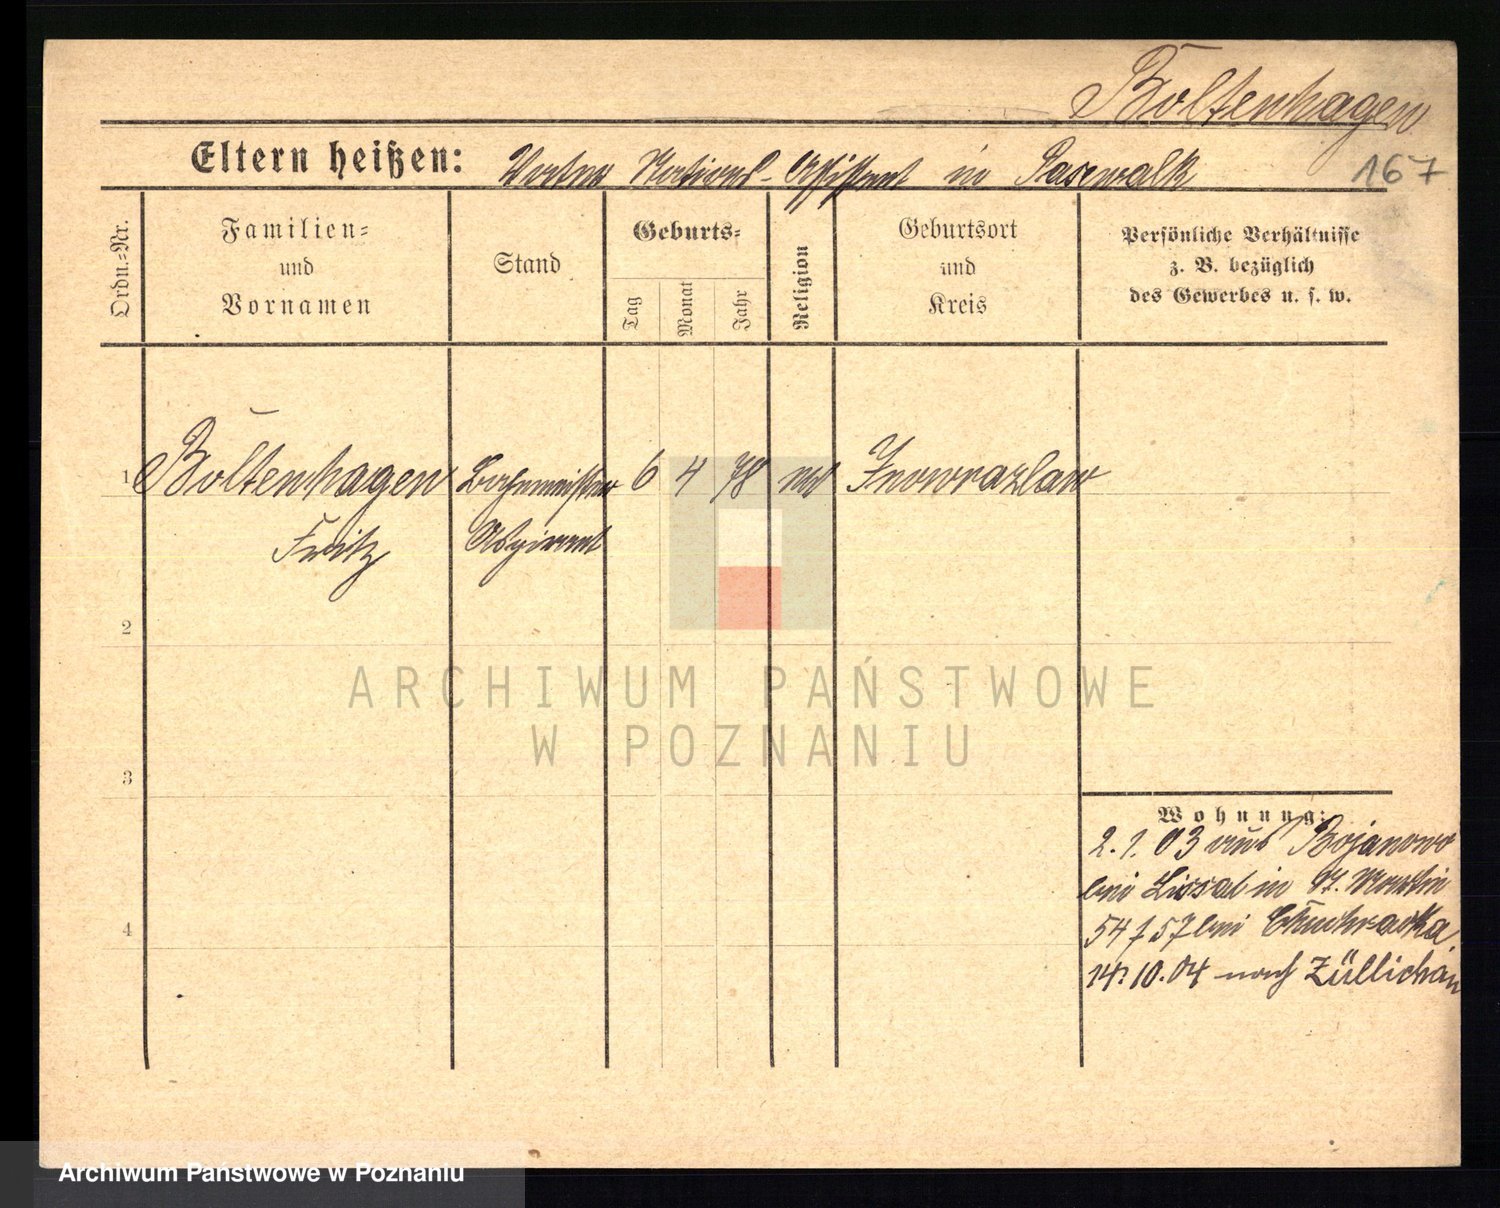 Boltenhagen
167
Eltern heißen: Vater Stations-Assistent in Pasewalk
Ordn.-Nr.
Familien-
und
Vornamen
Stand
Geburts-
Tag
Monat
Jahr
Religion
Geburtsort
und
Kreis
Persönliche Verhältnisse
z. B. bezüglich
des Gewerbes u. s. w.
1 Boltenhagen Bahnmeister 6 4 78 Inowrazlaw
Fritz Aspirant
2
3
4
Wohnung:
2.1.03 aus Bojanowo
bei Lissa in St. Martin
54/57 bei
14.10.04 nach Züllichau
ARCHIWUM PAŃSTWOWE
W POZNANIU
Archiwum Państwowe w Poznaniu